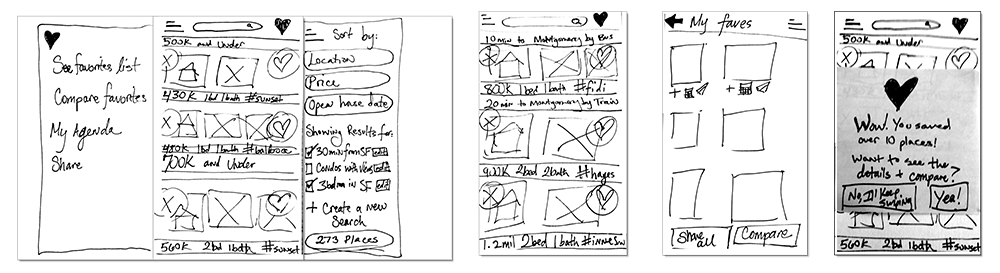 See favorites list
Compare favorites
My Agenda
Share
500K and Under
X
430K 1bd 1bath #sunset
X
480K 1bd 1bath
700K and Under
X
560K 2bd 1bath #sunset
Sort by:
Location
Price
Open house date
Showing Results for:
30min from SF edit
Condos with Views edit
3bdrm in SF edit
+ Create a new
Search
273 Places
10 min to Montgomery by Bus
X
800K 1bd 1bath #fidi
20 min to Montgomery by Train
X
900K 2bd 2bath #hayes
X
1.2mil 2bed 1bath
My faves
+
+
Share
all
Compare
500K and Under
X
Wow! You saved
over 10 places!
Want to see the
details + compare?
No, I'll keep
Yea!
560K 2bd 1bath #sunset